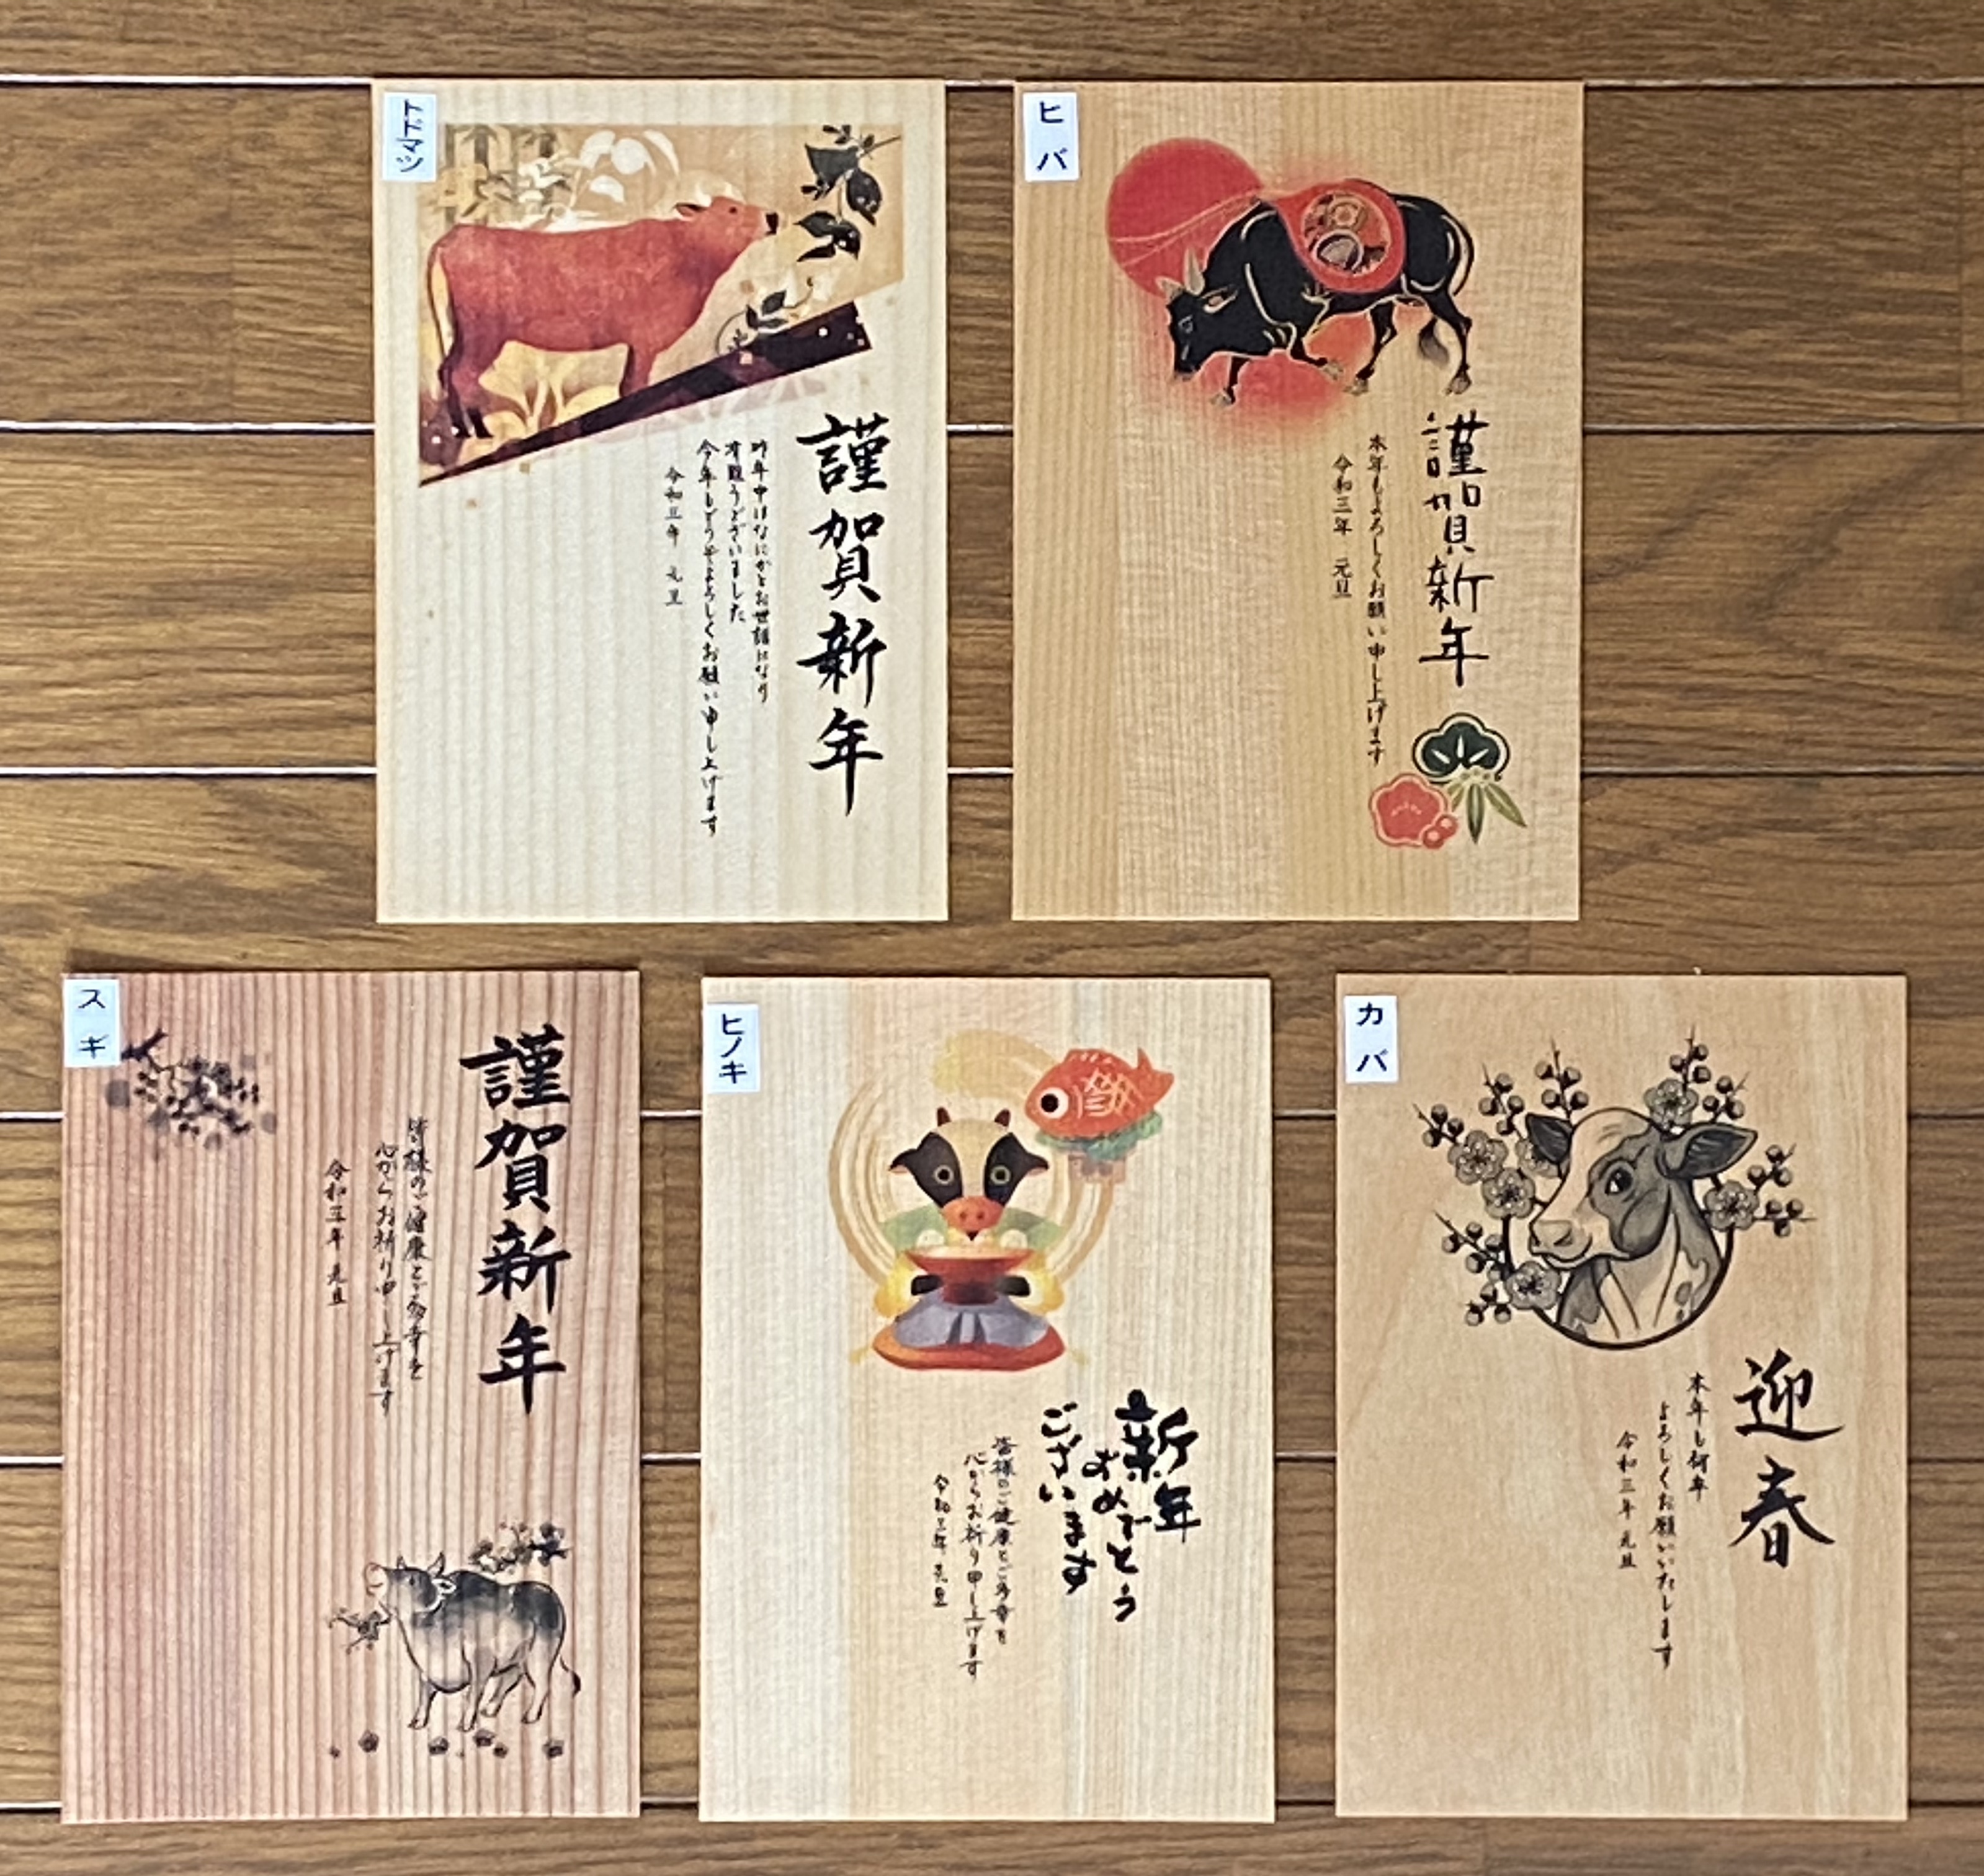 トドマツ
謹賀新年
昨年中はなにかとお世話になり
有難うございました
今年もどうぞよろしくお願い申し上げます
令和三年 元旦
ヒバ
謹賀新年
本年もよろしくお願い申し上げます
令和三年 元旦
スギ
謹賀新年
皆様のご健康とご多幸を
心からお祈り申し上げます
令和三年 元旦
ヒノキ
新年
おめでとう
ございます
皆様のご健康とご多幸を
心からお祈り申し上げます
令和三年 元旦
カバ
迎春
本年も何卒
よろしくお願いいたします
令和三年 元旦